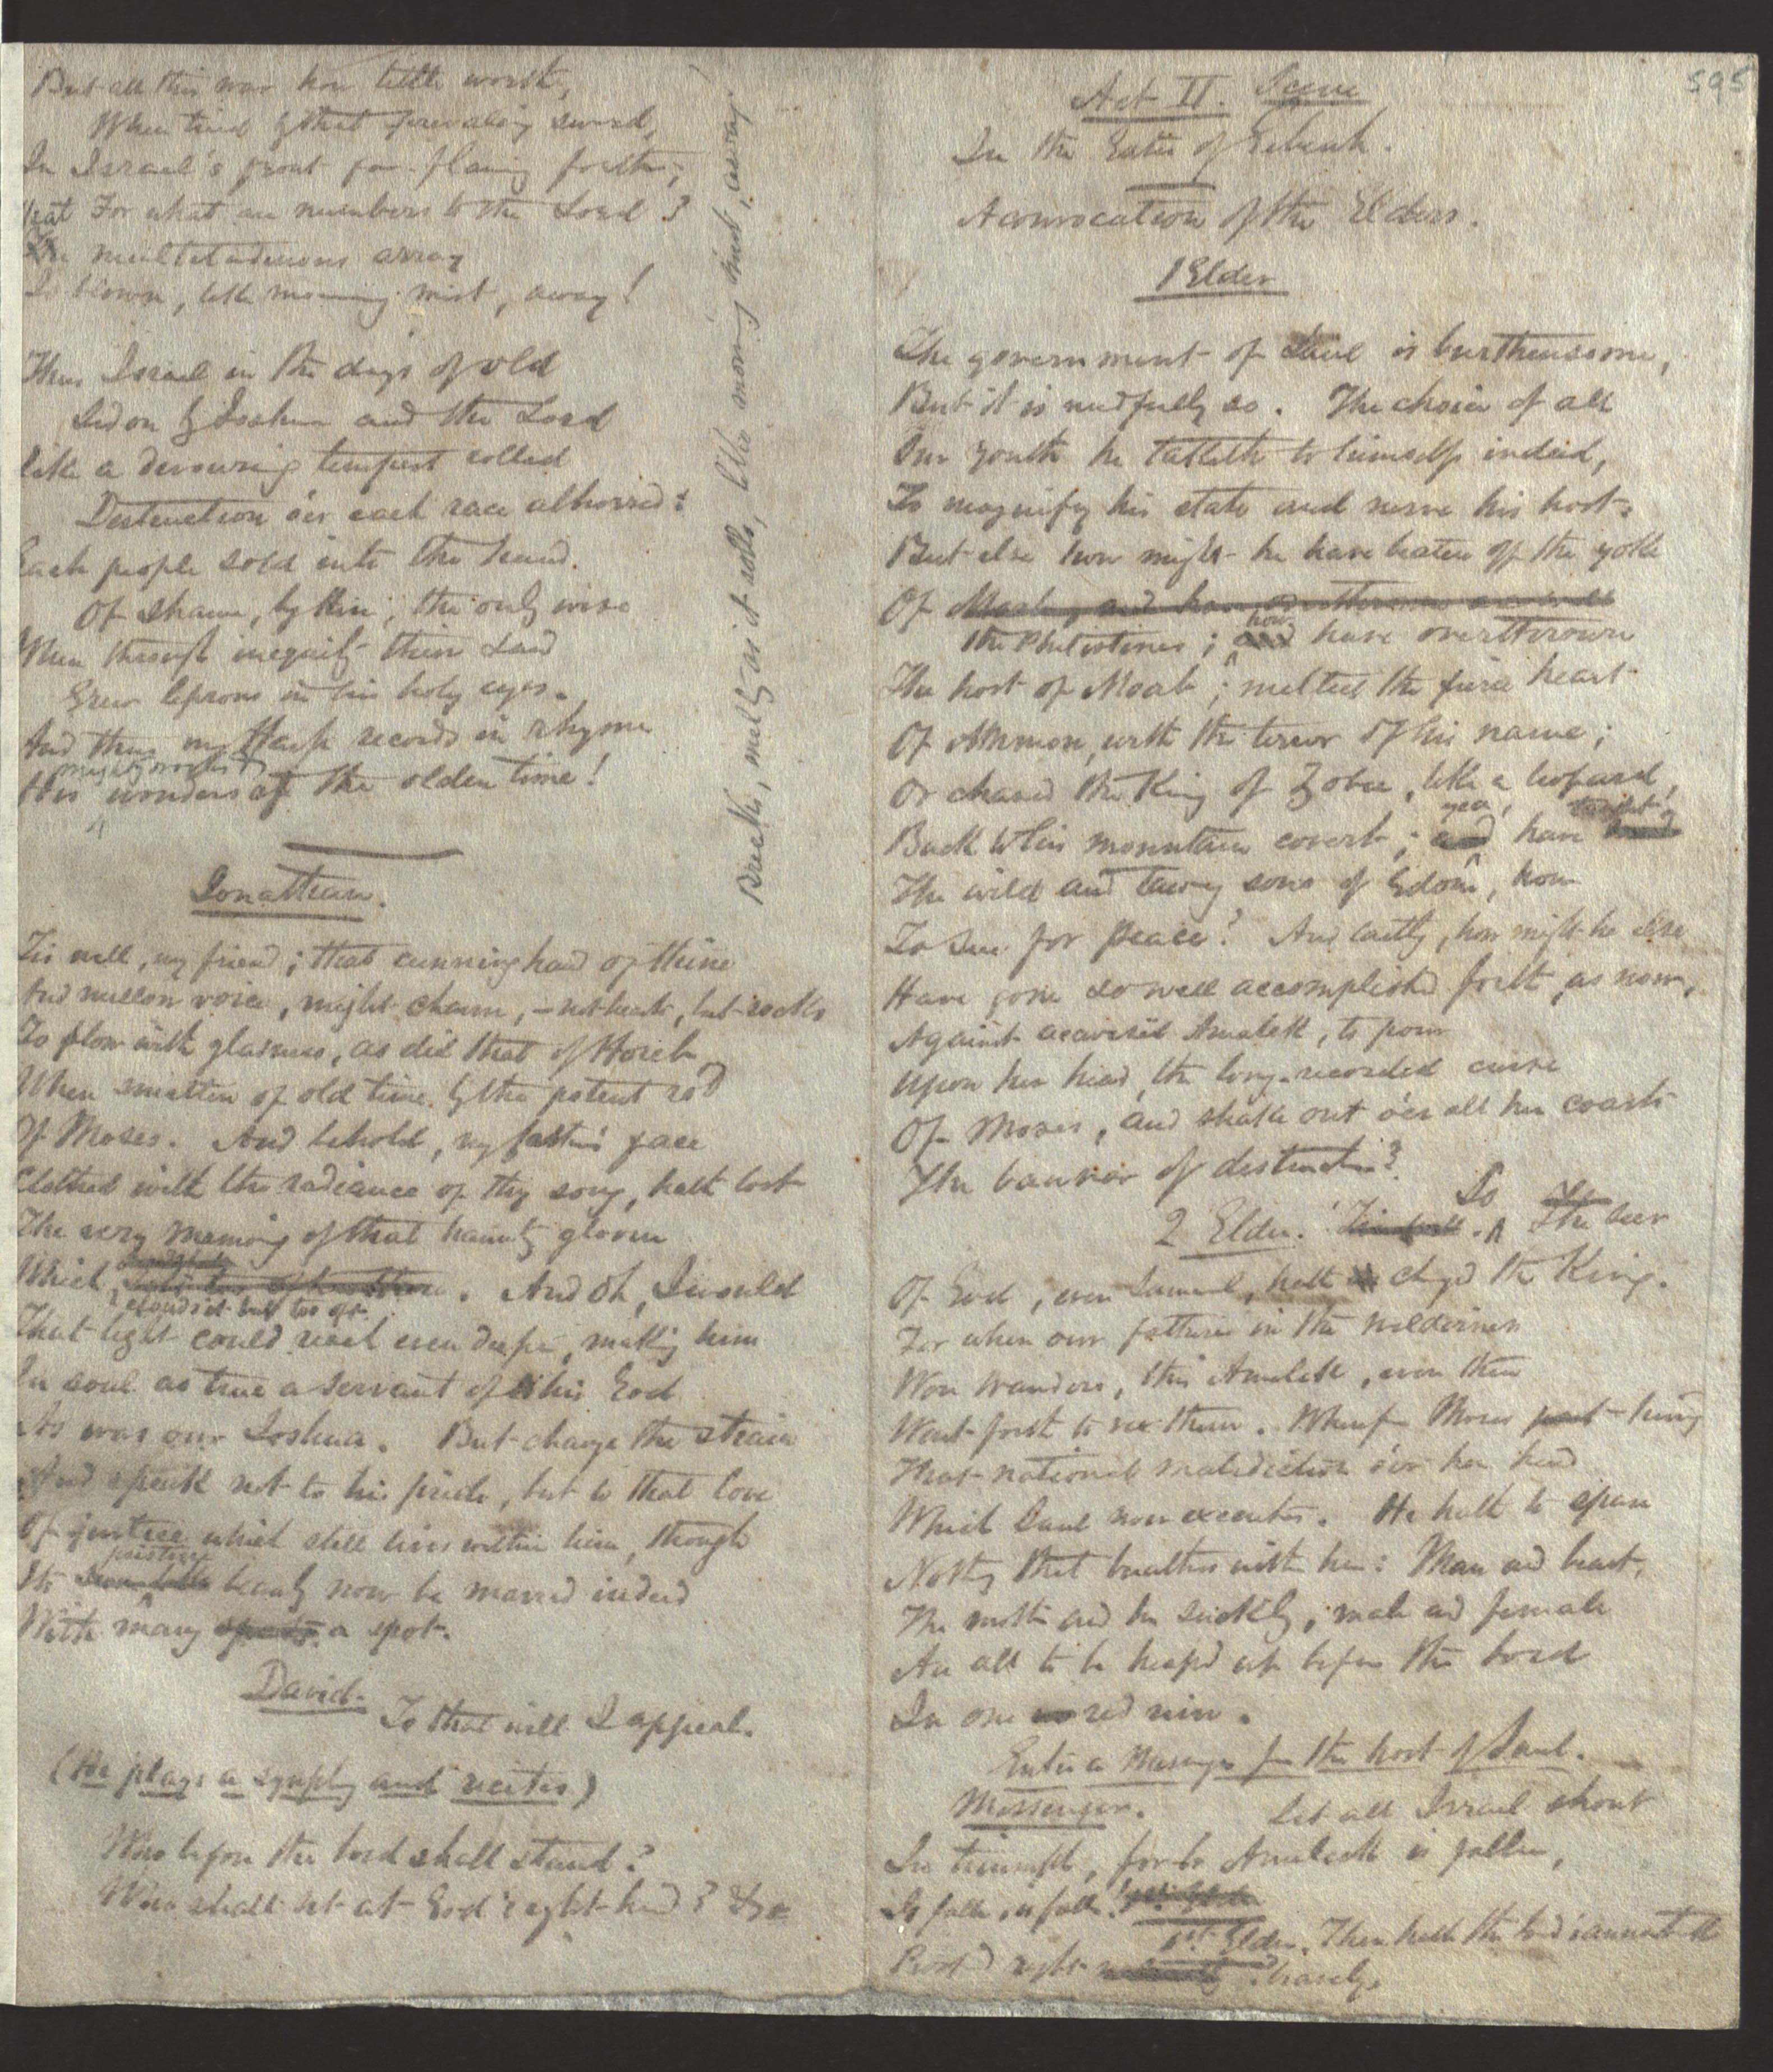 But all this was how little worth,
When tried by that prevailing sword,
In Israel's front far-flaming forth;
For what are numbers to the Lord?
multitudinous array
Is blown, like morning mist, away!
Thus Israel in the days of old
Led on by Joshua and the Lord
Like a devouring tempest rolled
Destruction o'er each race abhorred:
Each people sold into the hand
Of shame, by Him, the only wise
When through iniquity their Land
Grew leprous in his holy eyes.
And thus my Harp records in rhyme
mighty
His wonders of the olden time!
Breaks, melts as it rolls, like morning mist, away.
Jonathan.
Tis well, my friend; that cunning hand of thine
And mellow voice, might charm, – not hearts, but rocks
To flow with gladness, as did that of Horeb
When smitten of old time by the potent rod
Of Moses. And behold, my father's face
Clothed with the radiance of thy song, hath lost
The very memory of that haunty gloom
Which, . And oh, I would
clouds it but too oft
That light could reach even deeper, making him
In soul as true a servant of his God
As was our Joshua. But change the strain
And speak not to his pride, but to that love
Of justice which still lives within him, though
pristine
Its beauty now be marred indeed
With many a spot.
David.
To that will I appeal.
(He plays a symphy and recites)
Who before the Lord shall stand?
Who shall sit at God's right-hand? &c
595
Act II. Scene
In the Gates of Gibeah.
A convocation of the Elders.
1 Elder
The government of Saul is burthensome,
But it is needfully so. The choice of all
Our youth he taketh to himself indeed,
To magnify his state and nerve his host.
But else how might he have beaten off the yoke
Of Moab, and have
the Philistines; how have overthrown
The host of Moab; melted the fierce heart
Of Ammon, with the terror of his name;
Or chased the King of Zobah, like a leopard,
yea,
Back to his mountain covert; and have
The wild and tawny sons of Edom, how
To sue for peace? And lastly, how might he else
Have gone so well accomplished forth, as now,
Against accursed Amalek, to pour
Upon her head the long-recorded curse
Of Moses, and shake out o'er all her coasts
The banner of destruction?
2 Elder. So The Seer
Of God, even Samuel, hath chg'd the King.
For when our fathers in the wilderness
Were wanderers, this Amalek, even then
Went forth to vex them. Wherefor Moses hung
That national malediction o'er her head
Which Saul now executes. He hath to spare
Nothing that breathes with her: Man and beast,
The mother and her suckling, male and female
Are all to be heap'd up before the Lord
In one red ruin.
Enter a Messenger from the host of Saul.
Messenger. Let all Israel shout
In triumph, for lo Amalek is fallen,
Is fallen, is fallen!
1st Elder. Then hath the Lord
right bravely.